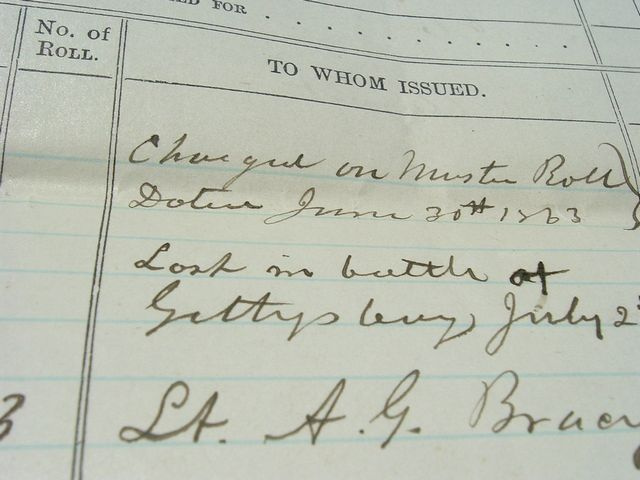 ED FOR . . . . . . . . . . .
No. of
ROLL.
TO WHOM ISSUED.
Charged on Muster Roll
Dated June 30th 1863
Lost in battle of
Gettysburg, July 2
3
Lt. A. G.